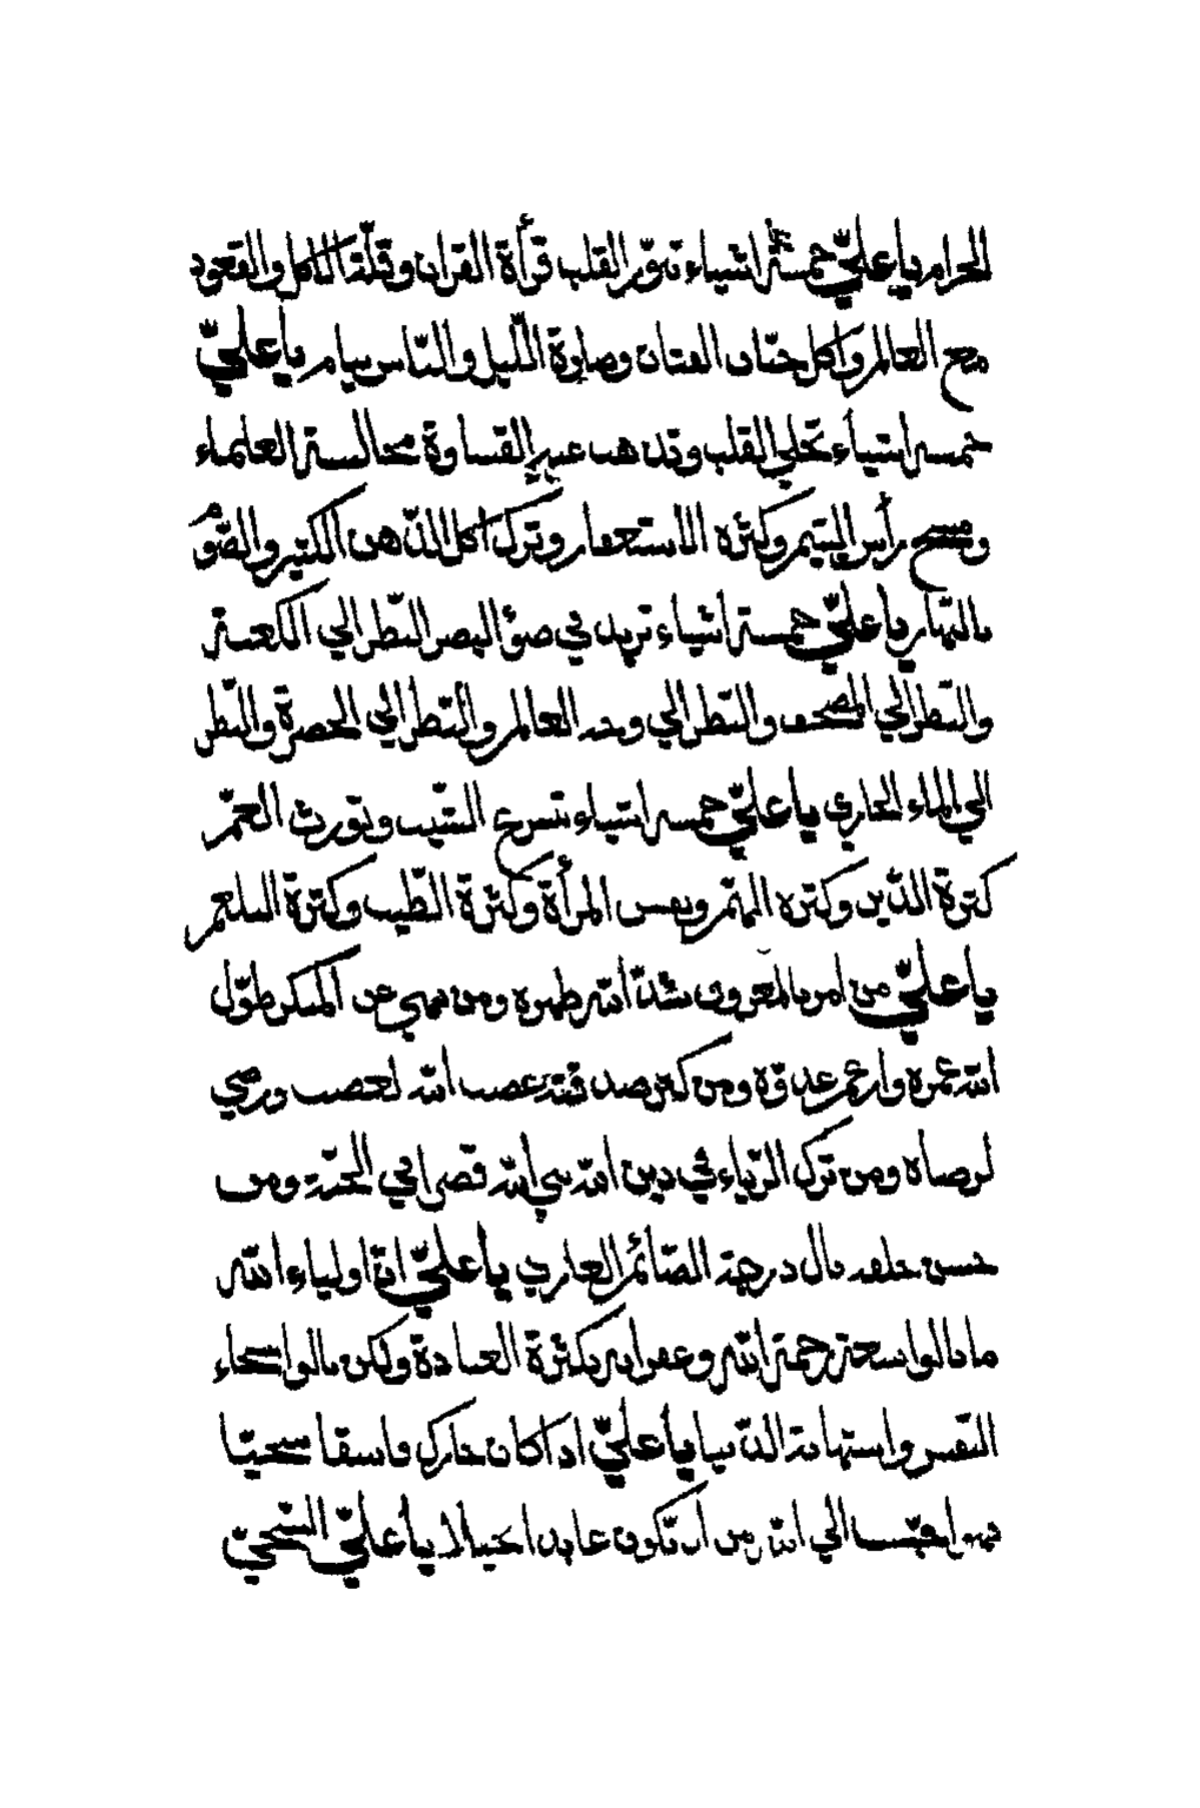 الحرام يا عليّ خمسة اشياء تنوّر القلب قرأة القران وقلّة الاكل والقعود
مع العالم واكل جنّات الفتات وصلوة اللّيل والنّاس نيام يا عليّ
خمسة اشياء تجلي القلب وتذهب عنه القساوة مجالسة العلماء
ومسح رأس اليتيم وكثرة الاستغفار وترك اكل الدّهن الكثير والصّوم
بالنّهار يا عليّ خمسة اشياء تزيد في ضوء البصر النّظر الي الكعبة
والنّظر الي المصحف والنّظر الي وجه العالم والنّظر الي الخضرة والنّظر
الي الماء الجاري يا عليّ خمسة اشياء تسرع الشّيب وتورث العمّر
كثرة الدّين وكثرة الهمّ ونفس المرأة وكثرة الطّيب وكثرة البلغم
يا عليّ من امر بالمعروف شدّ الله ظهره ومن نهي عن المنكر طوّل
الله عمره وارحم عدوّه ومن كثر صدقته غضب الله لغضبه ورضي
لرضاه ومن ترك الرّياء في دين الله بني الله قصرا في الجنّة ومن
حسن خلقه نال درجة الصّائم العاري يا عليّ انّ اولياء الله
ما نالوا سعة رحمة الله وغفرانه بكثرة العبادة ولكن نالوا بسخاء
النّفس واستهانة الدّنيا يا عليّ اذا كان جارك فاسقا سخيّا
فهو احبّ الي الله من ان تكون عابدا بخيلا يا عليّ السّخيّ